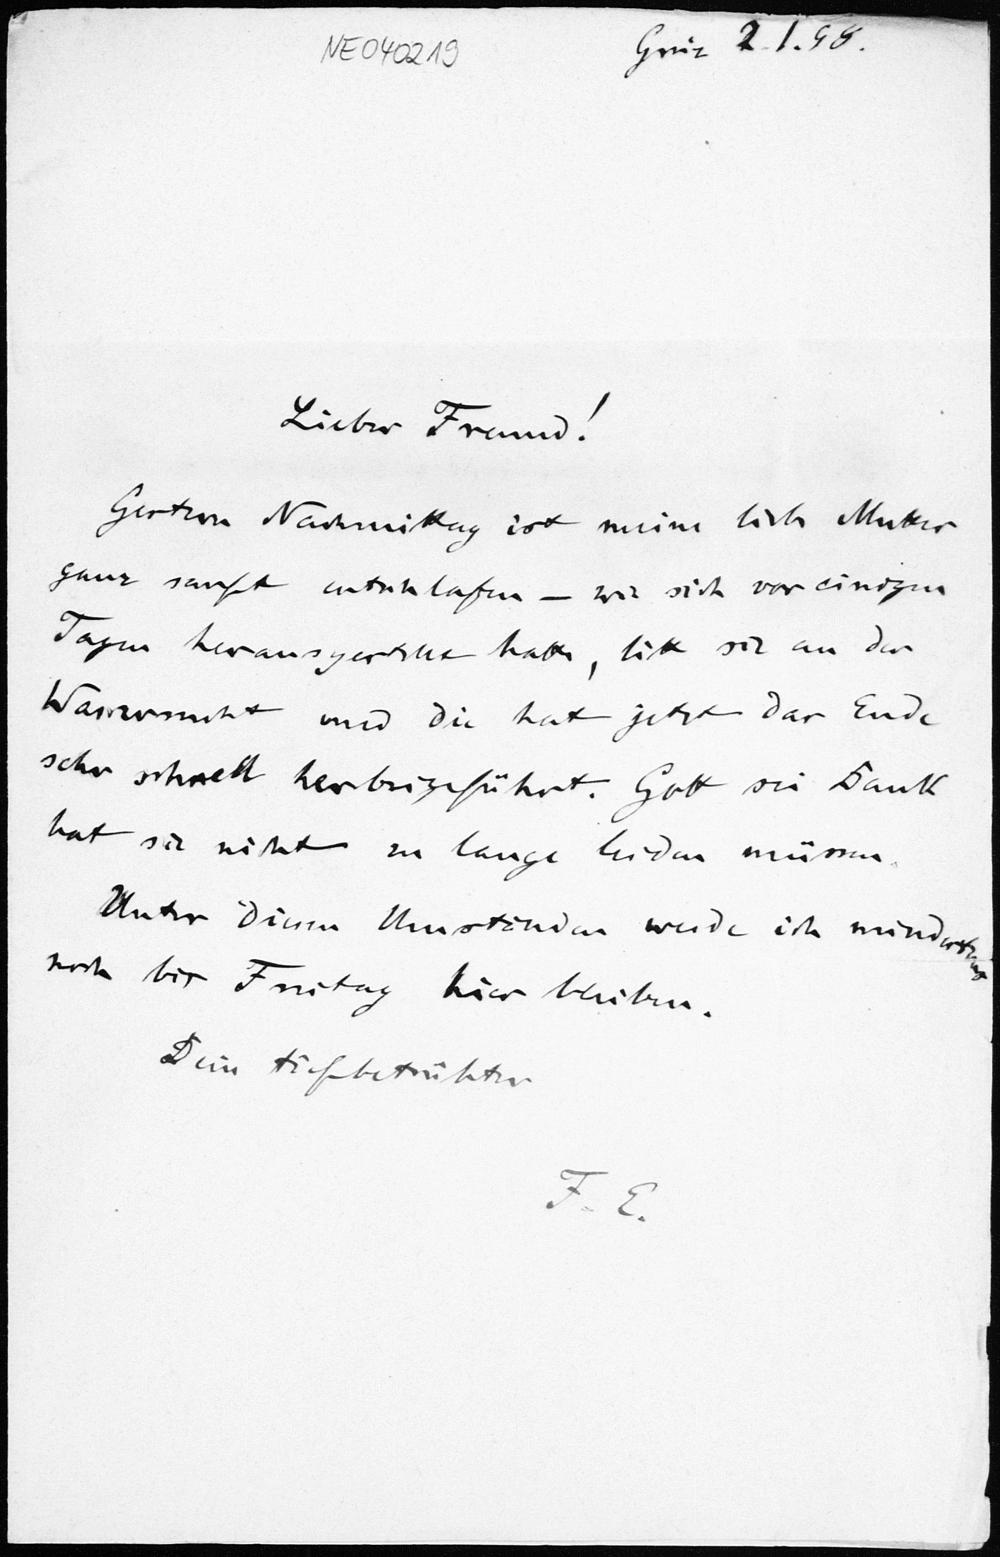 NE040219
Greiz 2.1.98.
Lieber Freund!
Gestern Nachmittag ist meine liebe Mutter
ganz sanft entschlafen – wie sich vor einigen
Tagen herausgestellt hatte, litt sie an der
Wassersucht und die hat jetzt das Ende
sehr schnell herbeigeführt. Gott sei Dank
hat sie nicht zu lange leiden müssen.
Unter diesen Umständen werde ich mindestens
noch bis Freitag hier bleiben.
Dein tiefbetrübter
F. E.